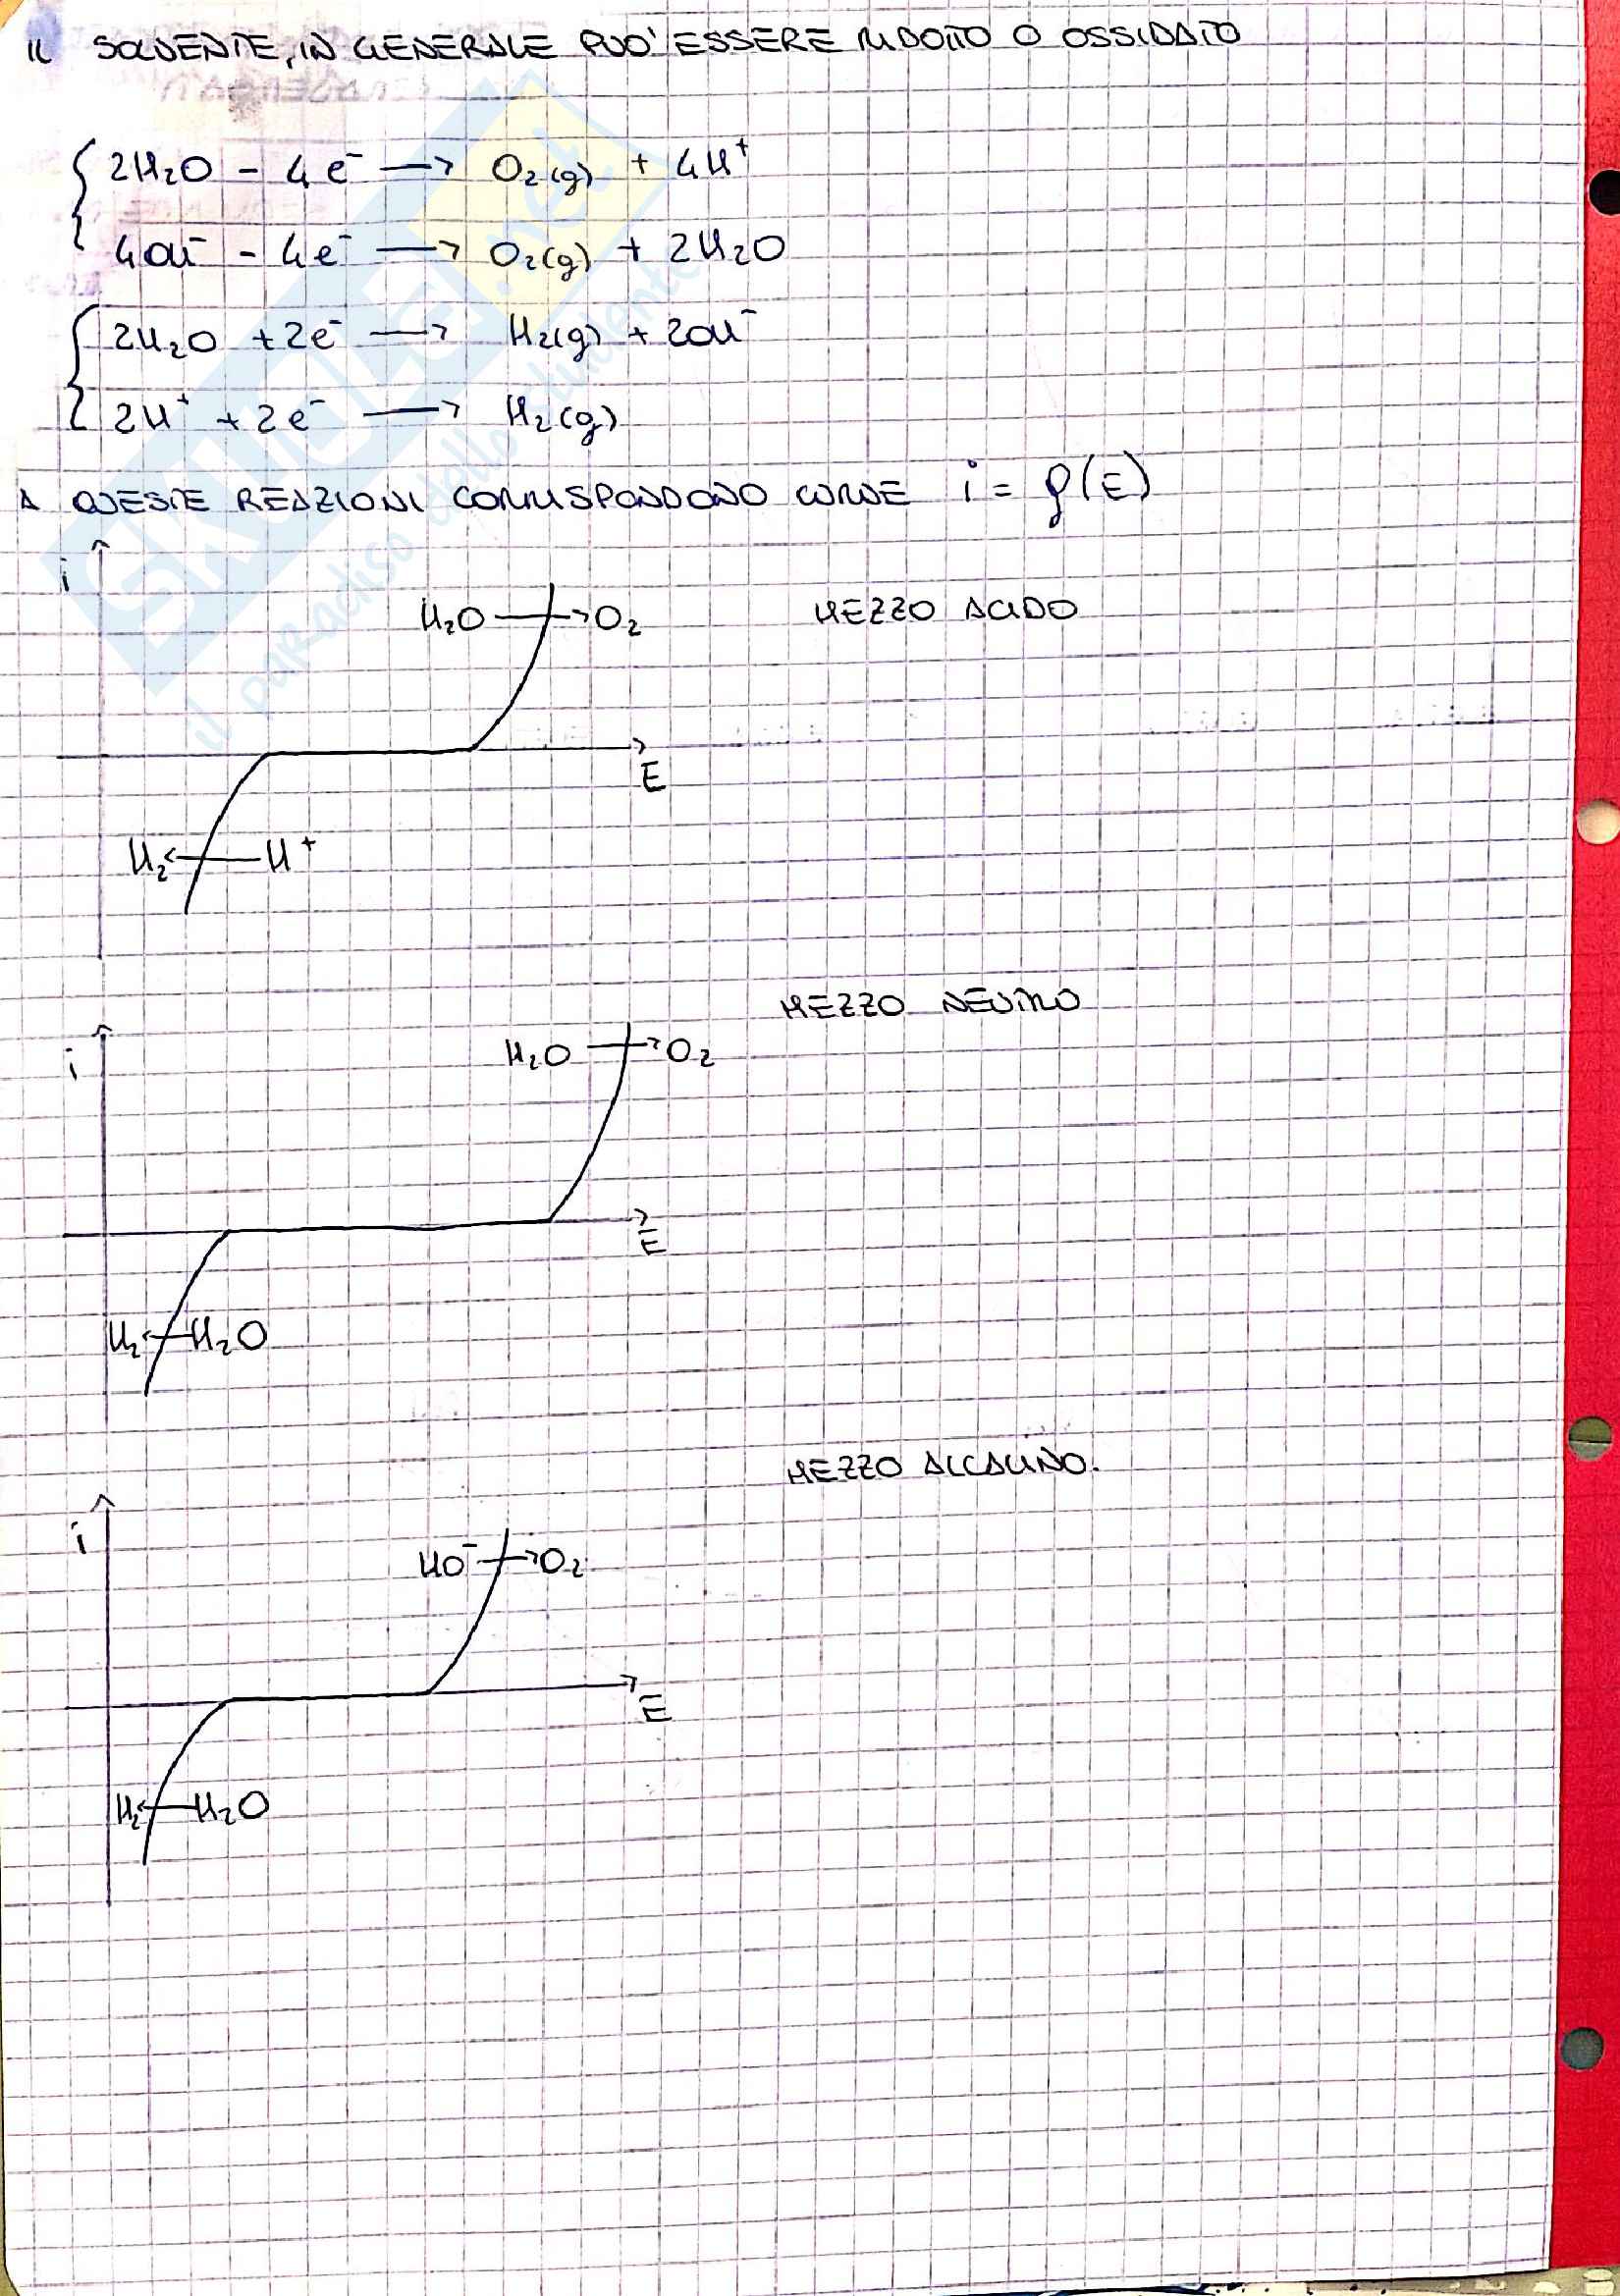 IL SOLVENTE, IN GENERALE PUO' ESSERE RIDOTTO O OSSIDATO
2H₂O - 4e⁻ → O₂(g) + 4H⁺
4OH⁻ - 4e⁻ → O₂(g) + 2H₂O
2H₂O + 2e⁻ → H₂(g) + 2OH⁻
2H⁺ + 2e⁻ → H₂(g)
A QUESTE REAZIONI CORRISPONDONO CURVE i = f(E)
SKUOLA.net
il paradiso dello studente
i
H₂O → O₂
MEZZO ACIDO
E
H₂ ← H⁺
MEZZO NEUTRO
i
H₂O → O₂
E
H₂ ← H₂O
MEZZO ALCALINO.
i
HO⁻ → O₂
E
H₂ ← H₂O